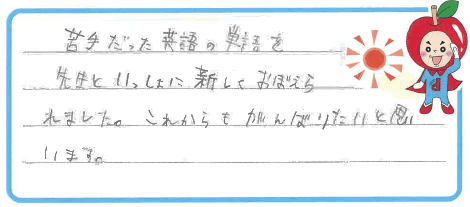 苦手だった英語の単語を
先生といっしょに新しくおぼえら
れました。これからもがんばりたいと思い
います。